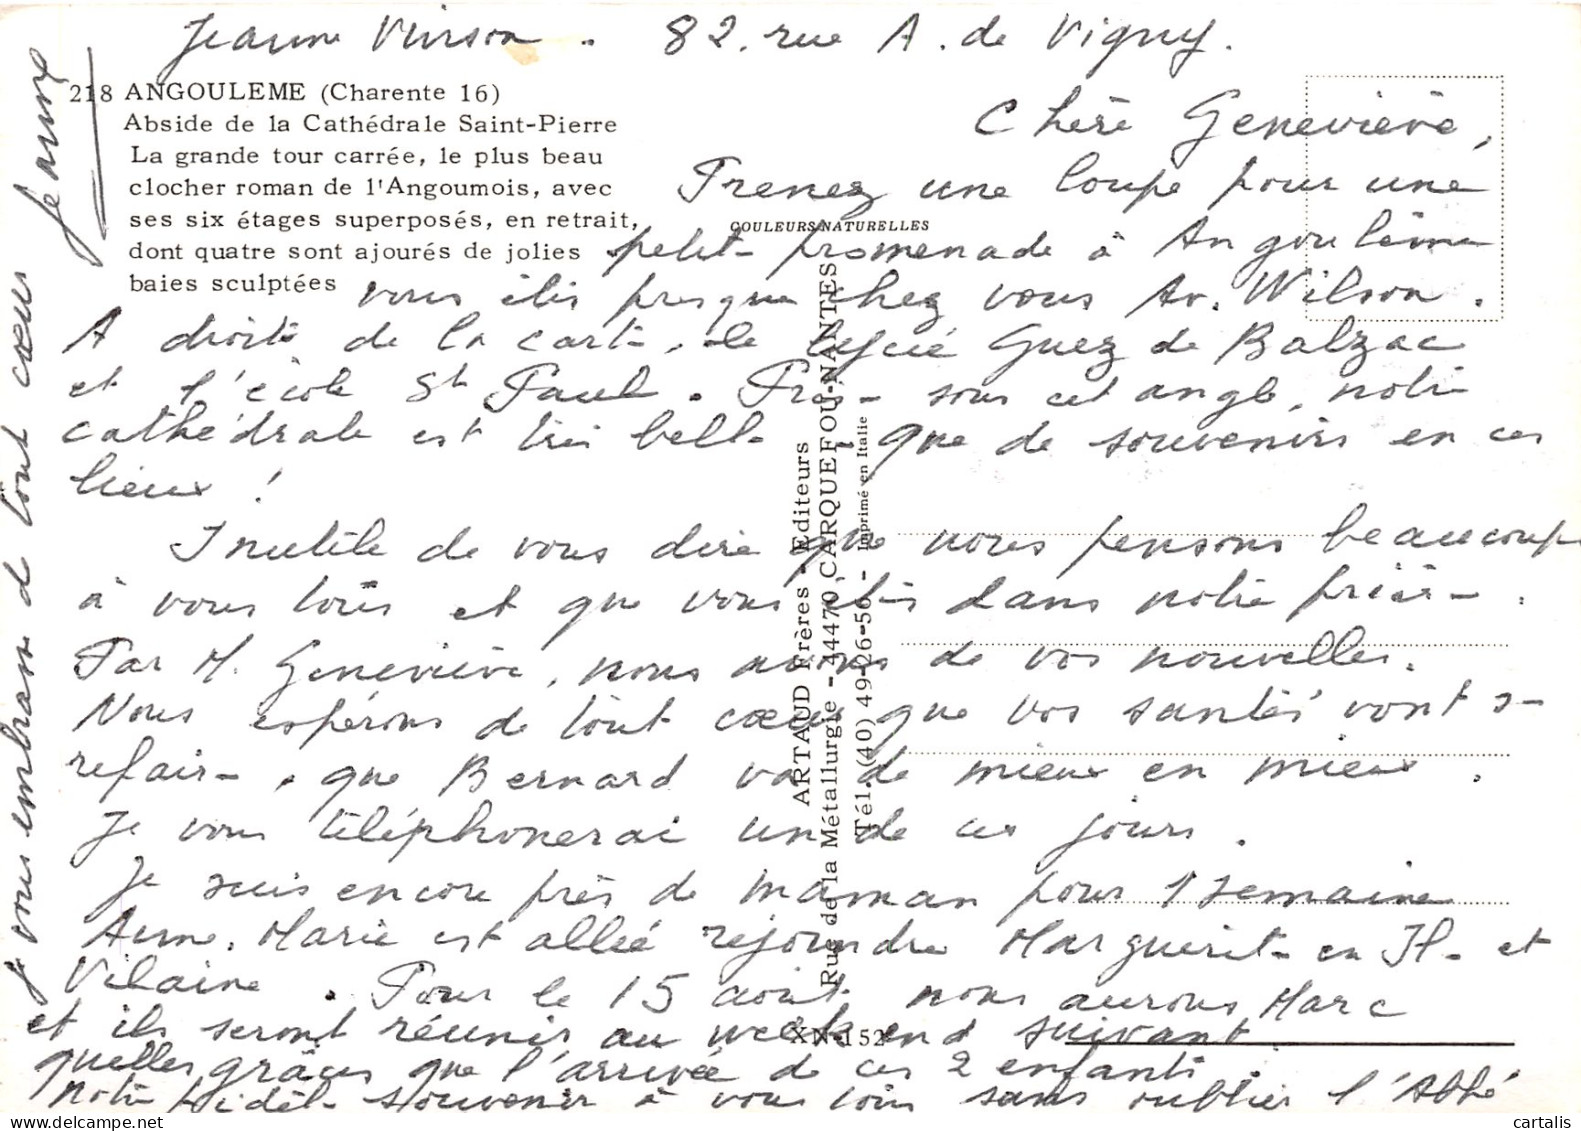 Jeanne Vinson . 82, rue A. de Vigny.
218 ANGOULEME (Charente 16)
Abside de la Cathédrale Saint-Pierre
La grande tour carrée, le plus beau
clocher roman de l'Angoumois, avec
ses six étages superposés, en retrait,
dont quatre sont ajourés de jolies
baies sculptées
COULEURS NATURELLES
Chère Geneviève,
Prenez une loupe pour une
petite promenade à Angoulême
vous êtes presque chez vous Av. Wilson.
A droite de la carte, le lycée Guez de Balzac
et l'école St Paul. Prise sous cet angle, notre
cathédrale est très belle, que de souvenirs en ces
lieux !
Inutile de vous dire que nous pensons beaucoup
à vous tous et que vous êtes dans notre prière.
Par M. Geneviève, nous avons de vos nouvelles.
Nous espérons de tout cœur que vos santés vont se
refaire, que Bernard va de mieux en mieux.
Je vous téléphonerai un de ces jours.
Je suis encore près de maman pour 1 semaine
Anne. Marie est allée rejoindre Marguerite en Il. et
Vilaine. Pour le 15 août nous aurons Marc
et ils seront réunis au week end suivant
quelles grâces que l'arrivée de ces 2 enfants.
Notre fidèle souvenir à vous tous sans oublier l'Abbé
Je vous embrasse de tout cœur Jeanne
ARTAUD Frères - Editeurs
Rue de la Métallurgie - 44470 CARQUEFOU-NANTES
Tél. (40) 49-26-56 - Imprimé en Italie
XN-152
cartalis